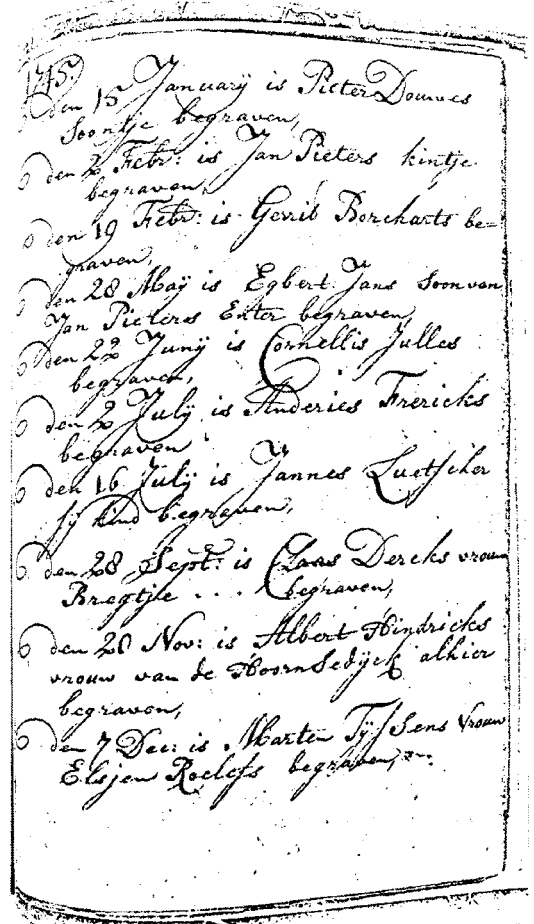 1745.
den 15 Januarij is Pieter Douwes
Soontje begraven,
den 2 Febr: is Jan Pieters kintje
begraven,
den 19 Febr: is Gerrit Borcharts be=
graven,
den 28 Maÿ is Egbert Jans soon van
Jan Pieters Enter begraven,
den 22 Junij is Cornellis Julles
begraven,
den 2 Julÿ is Anderies Frericks
begraven
den 16 Julÿ is Jannes Luetscher
sij kind begraven,
den 28 Sept: is Claas Dercks vrouw
Bregtjle . . . begraven,
den 20 Nov: is Albert Hindricks
vrouw van de Hoornsedijck alhier
begraven,
den 7 Dec: is Marten Tijssens vrouw
Elsjen Roelefs begraven,